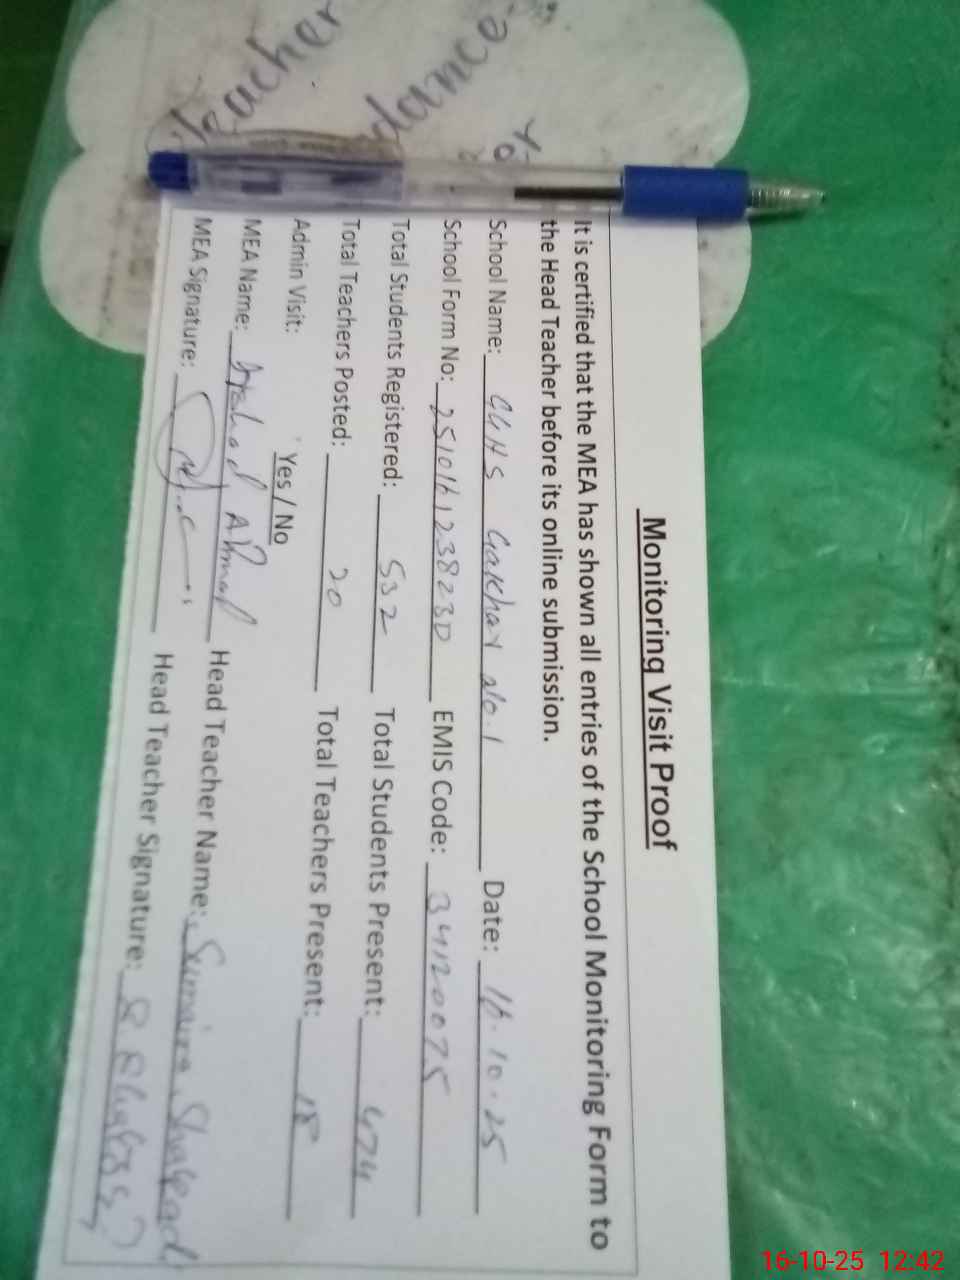 Teacher
dance
Monitoring Visit Proof
It is certified that the MEA has shown all entries of the School Monitoring Form to
the Head Teacher before its online submission.
School Name: GGHS Gakhar No.1 Date: 16.10.25
School Form No: 2510161238230 EMIS Code: 34120075
Total Students Registered: 532 Total Students Present: 474
Total Teachers Posted: 20 Total Teachers Present: 18
Admin Visit: Yes / No
MEA Name: Ahmad Head Teacher Name: Sumaira Shahzad
MEA Signature: Head Teacher Signature:
16-10-25 12:42